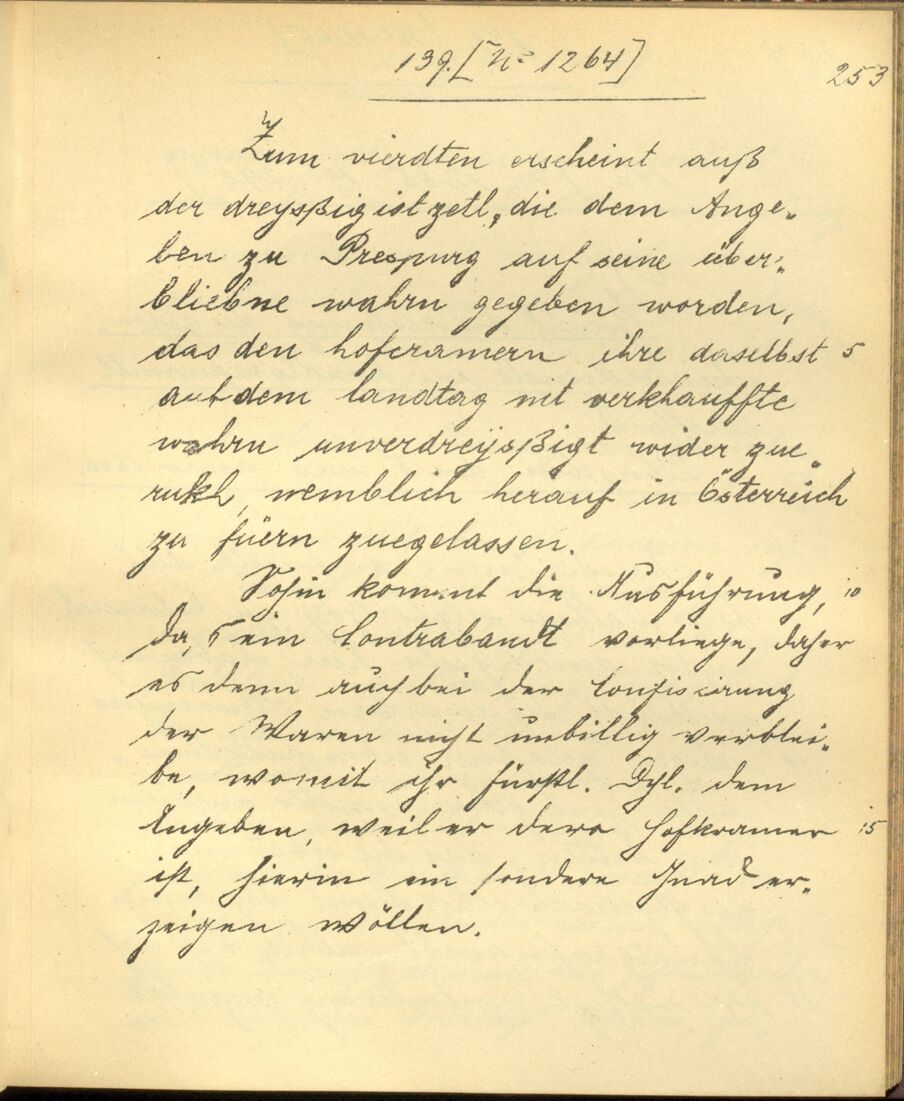 139. [No 1264]
253
Zum vierdten erscheint auß
der dreysßigistzetl, die dem Ange„
ben zu Prespurg auf seine über„
bliebne wahrn gegeben worden,
das den hofcramern ihre daselbst 5
auf dem landtag nit verkhauffte
wahrn unverdreysßigt wider zue„
rukh, nemblich herauf in Österreich
zu füern zuegelassen.
Sohin kommt die Ausführung, 10
da, ein Contrabandt vorliege, daher
es denn auch bei der Confiscirung
der Waren nicht unbillig verblei„
be, womit ihr fürstl. Dchl. dem
Angeben, weil er dero Hofkramer 15
ist, hierin ein sondere Gnad er„
zeigen wöllen.